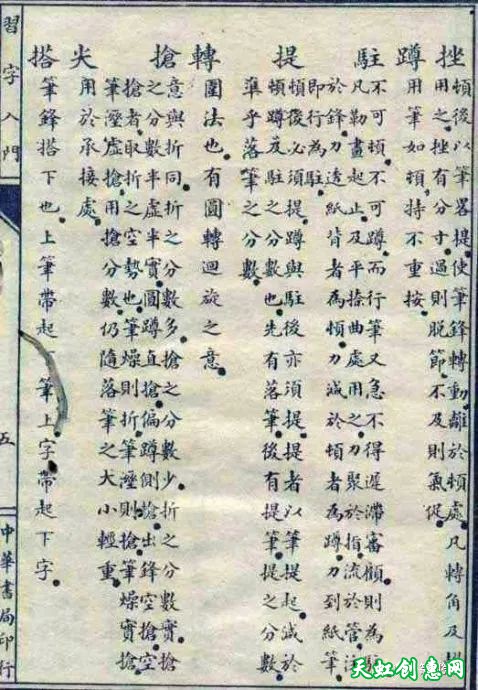 挫
頓後以筆畧提。使筆鋒轉動。離於頓處。凡轉角及
用之。挫有分寸。過則脫節。不及則氣促。
蹲
用筆如頓。特不重按。
駐
不可頓。不可蹲。而行筆又急。不得遲滯審顧。則為駐
凡勒畫起止。及平捺曲處用之。力聚於指。流於管。注
於鋒。力透紙背者為頓。力減於頓者為蹲。力到紙筆
即行為駐。
提
頓後必須提。蹲與駐後亦須提。提者以筆提起。減於
頓蹲度駐之分數也。先有落筆。後有提筆。提之分數
準乎落筆之分數。
轉
圍法也。有圓轉迴旋之意。
搶
意與折同。折之分數多。搶之分數少。折之分數實。搶
之分數半虛半實。圓蹲直搶。偏蹲側搶。出鋒空搶。空
搶者取折之空勢也。筆燥則折。筆溼則搶。筆燥實搶
筆溼虛搶。用搶分數。仍隨落筆之大小輕重。
尖
用於承接處。
搭
筆鋒搭下也。上筆帶起 筆。上字帶起下字。
習字入門
五
中華書局印行
天虹创意网